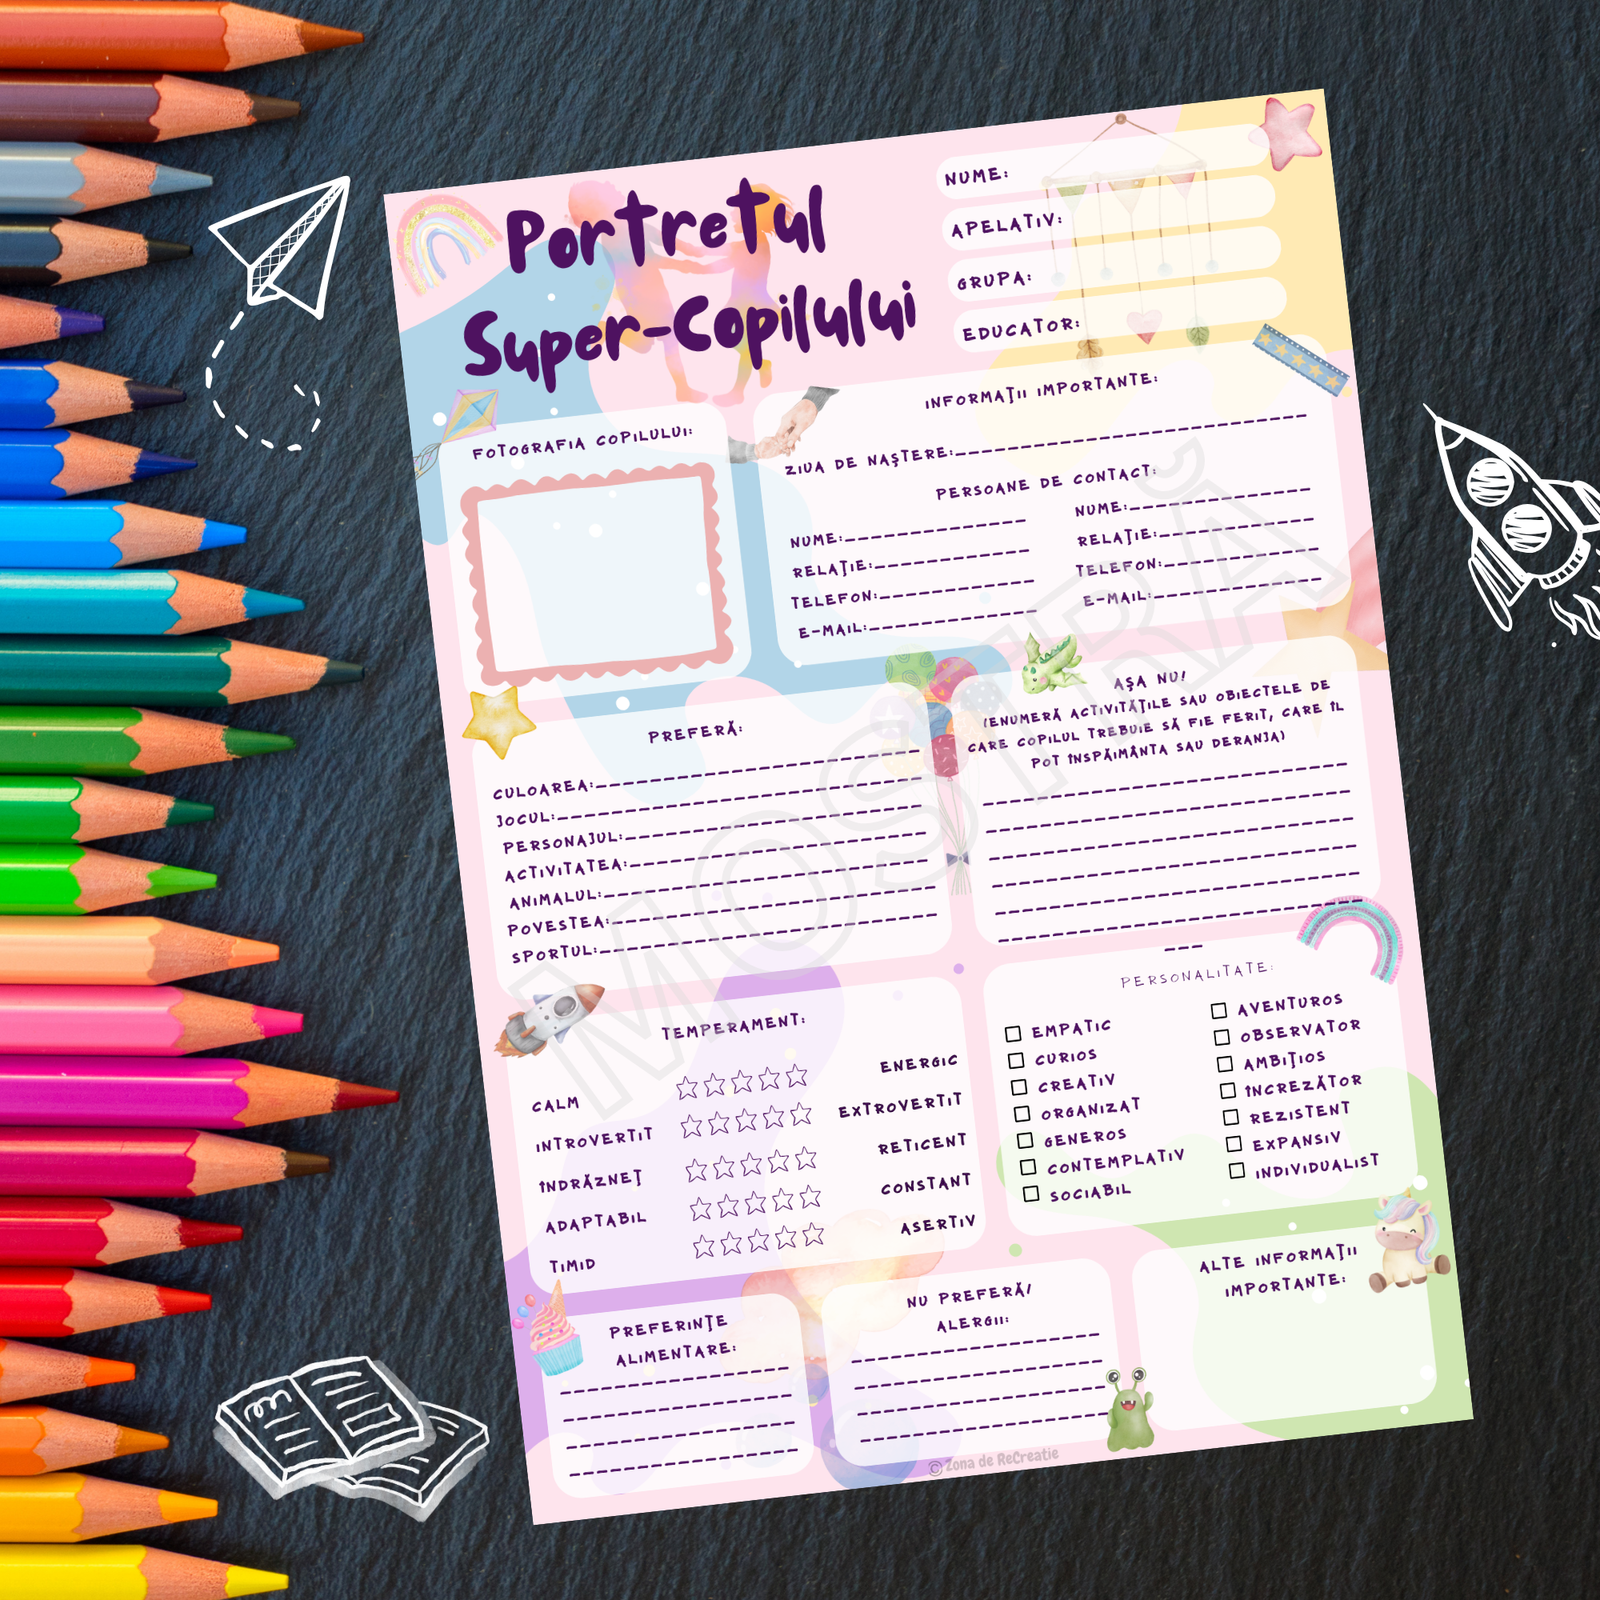 Portretul
Super-Copilului
NUME:
APELATIV:
GRUPA:
EDUCATOR:
FOTOGRAFIA COPILULUI:
INFORMAȚII IMPORTANTE:
ZIUA DE NAȘTERE:
PERSOANE DE CONTACT:
NUME:
RELAȚIE:
TELEFON:
E-MAIL:
NUME:
RELAȚIE:
TELEFON:
E-MAIL:
PREFERĂ:
CULOAREA:
JOCUL:
PERSONAJUL:
ACTIVITATEA:
ANIMALUL:
POVESTEA:
SPORTUL:
AȘA NU!
(ENUMERĂ ACTIVITĂȚILE SAU OBIECTELE DE
CARE COPILUL TREBUIE SĂ FIE FERIT, CARE ÎL
POT ÎNSPĂIMÂNTA SAU DERANJA)
MOSTRĂ
TEMPERAMENT:
CALM ENERGIC
INTROVERTIT EXTROVERTIT
ÎNDRĂZNEȚ RETICENT
ADAPTABIL CONSTANT
TIMID ASERTIV
PERSONALITATE:
EMPATIC
CURIOS
CREATIV
ORGANIZAT
GENEROS
CONTEMPLATIV
SOCIABIL
AVENTUROS
OBSERVATOR
AMBIȚIOS
ÎNCREZĂTOR
REZISTENT
EXPANSIV
INDIVIDUALIST
PREFERINȚE
ALIMENTARE:
NU PREFERĂ/
ALERGII:
ALTE INFORMAȚII
IMPORTANTE:
© Zona de ReCreatie